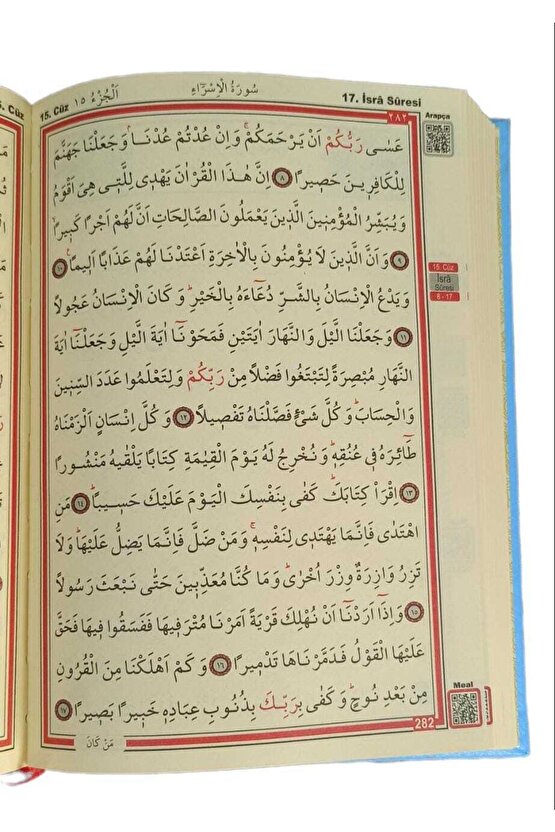 5. Cüz
15. Cüz
اَلْجُزْءُ ١٥
سُورَةُ الْاِسْرَٓاءِ
17. İsrâ Sûresi
٢٨٢
Arapça
عَسٰى رَبُّكُمْ اَنْ يَرْحَمَكُمْۚ وَاِنْ عُدْتُمْ عُدْنَاۢ وَجَعَلْنَا جَهَنَّمَ
لِلْكَافِر۪ينَ حَص۪يرًا ﴿٨﴾ اِنَّ هٰذَا الْقُرْاٰنَ يَهْد۪ي لِلَّت۪ي هِيَ اَقْوَمُ
وَيُبَشِّرُ الْمُؤْمِن۪ينَ الَّذ۪ينَ يَعْمَلُونَ الصَّالِحَاتِ اَنَّ لَهُمْ اَجْرًا كَب۪يرًاۙ
﴿٩﴾ وَاَنَّ الَّذ۪ينَ لَا يُؤْمِنُونَ بِالْاٰخِرَةِ اَعْتَدْنَا لَهُمْ عَذَابًا اَل۪يمًا۟ ﴿١٠﴾
وَيَدْعُ الْاِنْسَانُ بِالشَّرِّ دُعَٓاءَهُ بِالْخَيْرِۜ وَكَانَ الْاِنْسَانُ عَجُولًا
﴿١١﴾ وَجَعَلْنَا الَّيْلَ وَالنَّهَارَ اٰيَتَيْنِ فَمَحَوْنَٓا اٰيَةَ الَّيْلِ وَجَعَلْنَٓا اٰيَةَ
النَّهَارِ مُبْصِرَةً لِتَبْتَغُوا فَضْلًا مِنْ رَبِّكُمْ وَلِتَعْلَمُوا عَدَدَ السِّن۪ينَ
وَالْحِسَابَۜ وَكُلَّ شَيْءٍ فَصَّلْنَاهُ تَفْص۪يلًا ﴿١٢﴾ وَكُلَّ اِنْسَانٍ اَلْزَمْنَاهُ
طَٓائِرَهُ ف۪ي عُنُقِه۪ۜ وَنُخْرِجُ لَهُ يَوْمَ الْقِيٰمَةِ كِتَابًا يَلْقٰيهُ مَنْشُورًا
﴿١٣﴾ اِقْرَأْ كِتَابَكَۜ كَفٰى بِنَفْسِكَ الْيَوْمَ عَلَيْكَ حَس۪يبًاۜ ﴿١٤﴾ مَنِ
اهْتَدٰى فَاِنَّمَا يَهْتَد۪ي لِنَفْسِه۪ۚ وَمَنْ ضَلَّ فَاِنَّمَا يَضِلُّ عَلَيْهَاۜ وَلَا
تَزِرُ وَازِرَةٌ وِزْرَ اُخْرٰىۜ وَمَا كُنَّا مُعَذِّب۪ينَ حَتّٰى نَبْعَثَ رَسُولًا
﴿١٥﴾ وَاِذَٓا اَرَدْنَٓا اَنْ نُهْلِكَ قَرْيَةً اَمَرْنَا مُتْرَف۪يهَا فَفَسَقُوا ف۪يهَا فَحَقَّ
عَلَيْهَا الْقَوْلُ فَدَمَّرْنَاهَا تَدْم۪يرًا ﴿١٦﴾ وَكَمْ اَهْلَكْنَا مِنَ الْقُرُونِ
مِنْ بَعْدِ نُوحٍۜ وَكَفٰى بِرَبِّكَ بِذُنُوبِ عِبَادِه۪ خَب۪يرًا بَص۪يرًا ﴿١٧﴾
15. Cüz
İsrâ
Sûresi
8 - 17
Meal
282
مَنْ كَانَ